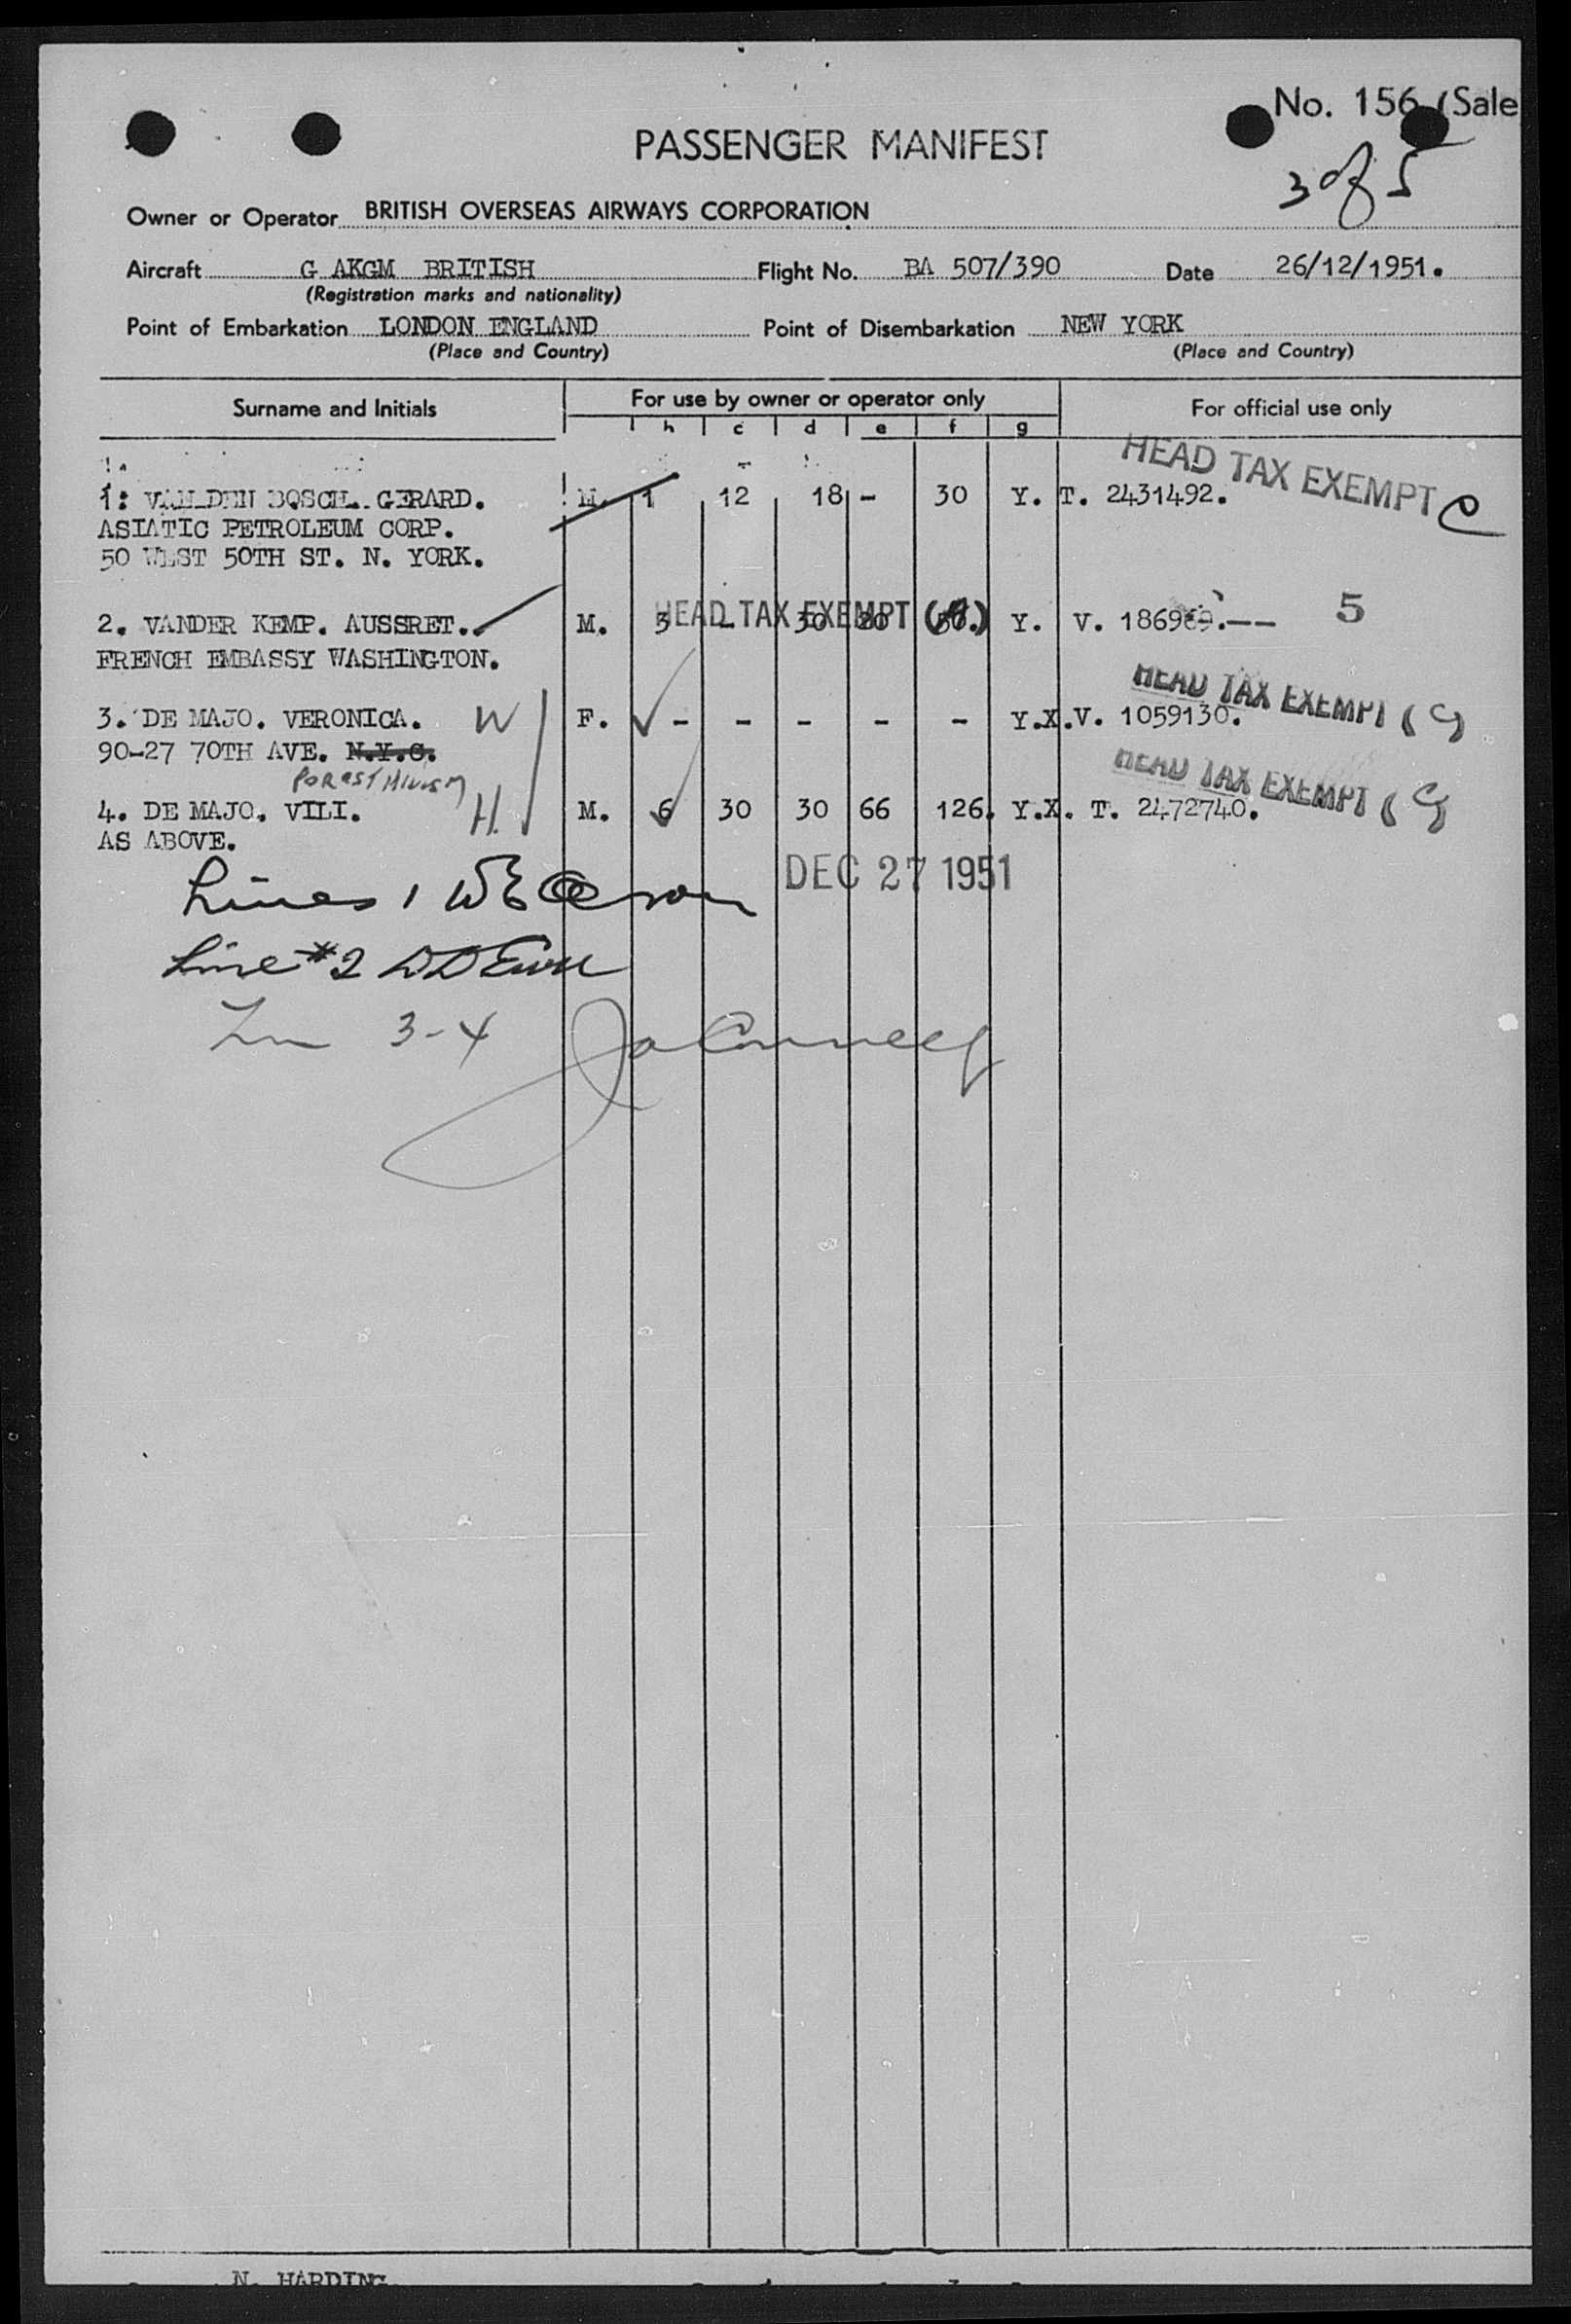 No. 156 (Sale
PASSENGER MANIFEST
3 of 5
Owner or Operator BRITISH OVERSEAS AIRWAYS CORPORATION
Aircraft G AKGM BRITISH Flight No. BA 507/390 Date 26/12/1951.
(Registration marks and nationality)
Point of Embarkation LONDON ENGLAND Point of Disembarkation NEW YORK
(Place and Country) (Place and Country)
Surname and Initials For use by owner or operator only For official use only
c d e f g
HEAD TAX EXEMPT C
1: VAN DEN BOSCH. GERARD. M. 1 12 18 - 30 Y. T. 2431492.
ASIATIC PETROLEUM CORP.
50 WEST 50TH ST. N. YORK.
HEAD TAX EXEMPT
2. VANDER KEMP. AUSSRET.. M. 3 - 30 20 Y. V. 5
FRENCH EMBASSY WASHINGTON.
HEAD TAX EXEMPT (C)
3. DE MAJO. VERONICA. W F. - - - - - Y.X.V. 1059130.
90-27 70TH AVE. N.Y.C.
FOREST HILLS
HEAD TAX EXEMPT (C)
4. DE MAJO. VILI. H. M. 6 30 30 66 126. Y.X. T. 2472740.
AS ABOVE.
DEC 27 1951
Lines 1
Line #2
Ln 3-4
N. HARDING